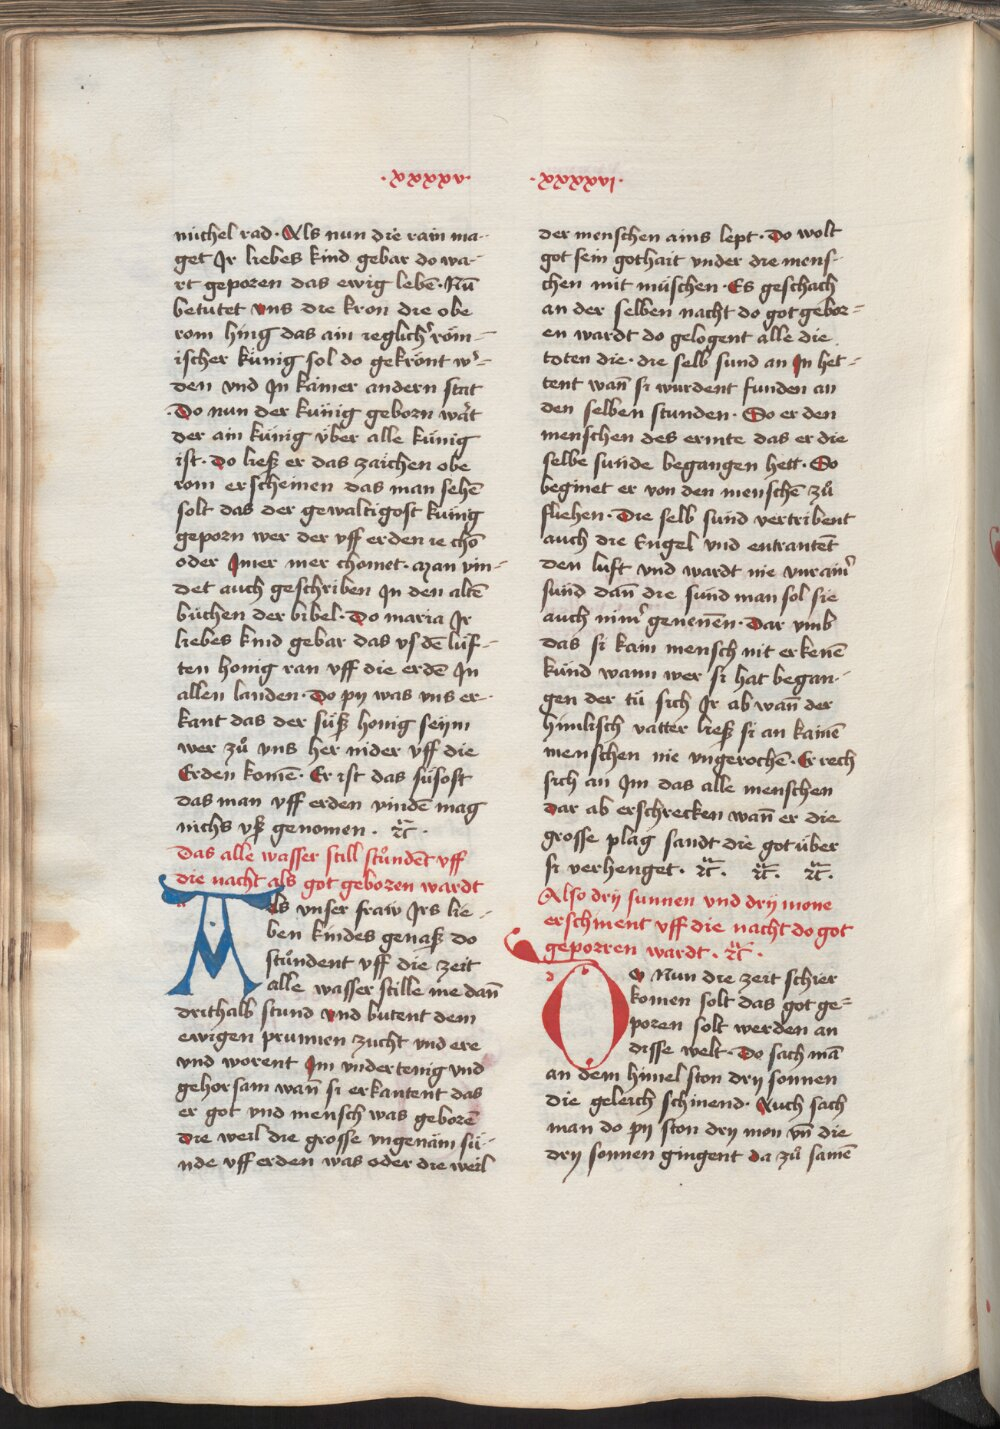 ·xxxxv·
michel rad· Als nun die rain ma-
get Jr liebes kind gebar do wa-
rt geporen das ewig lebē· Nū
betutet vns die kron die obe
rom hing das ain ieglichʼ röm-
ischer künig sol do gekrönt wʼ-
den vnd Jn kainer andern stat
·Do nun der künig geborn wart
der ain künig v̈ber alle künig
ist· Do ließ er das zaichen obe
rom erscheinen das man sehē
solt das der gewaltigost künig
geporn wer der vff erden ie chō
oder Jmer mer chomet· Man vin-
det auch geschriben Jn den altē
büchen der bibel· Do maria Jr
liebes kind gebar das vs dē lüf-
ten honig ran vff die erdē Jn
allen landen· Do pij was vns er-
kant das der süß honig seijm
wer zů vns her nider vff die
Erden komē· Er ist das süsost
das man vff erden vindē mag
nichs vß genomen · rc̈ ·
Das alle wasser still stůndēt vff
die nacht als got geboren wardt
Als vnser fraw Jrs lie-
ben kindes genaß do
stůndent vff die zeit
alle wasser stille me dañ
drithalb stund vnd butent dem
ewigen prunnen zucht vnd ere
vnd worent Jm vndertenig vnd
gehorsam wañ si erkantent das
er got vnd mensch was geborē
die weil die grosse vngenäm sü-
nde vff erden was oder die weil
·xxxxvi·
der menschen ains lept· Do wolt
got sein gothait vnder die mens-
chen mit müschen· Es geschach
an der selben nacht do got gebor=
en wardt do gelogent alle die
toten die· die selb sund an Jn het-
tent wañ si wurdent funden an
den selben stunden· So er den
menschen des ermte das er die
selbe sunde begangen hett· So
beginet er von den menschē zů
fliehen· Die selb sünd vertribent
auch die Engel vnd entrantēt
den luft vnd wardt nie vnrainʼ
sünd dañ die sünd man sol sie
auch nimʼ genenēn· Dar vmb
das si kain mensch nit erkenē
künd wann wer si hat began-
gen der tü sich Jr ab wañ der
himlisch vatter ließ si an kainē
menschen nie vngerochē· Er rech
sich an Jm das alle menschen
dar ab erschrecken wañ er die
grosse plag sandt die got über
si verhenget· rc̈· rc̈· rc̈·
Also drij sunnen vnd drij mone
erschinent vff die nacht do got
geporren wardt · rc̈ ·
Do Nun die zeit schier
komen solt das got ge=
poren solt werden an
disse welt· Do sach mā
an dem himel ston drij sonnen
die geleich schinend· Auch sach
man do pij ston drij mon vñ die
drij sonnen gingent da zů samē